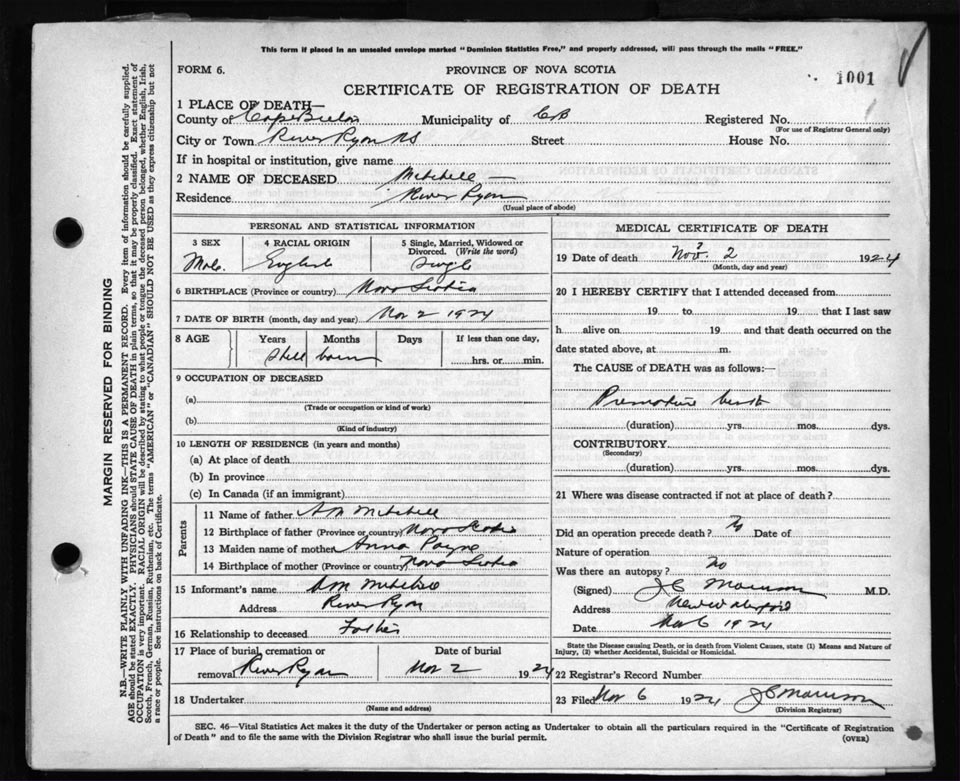 This form if placed in an unsealed envelope marked "Dominion Statistics Free," and properly addressed, will pass through the mails "FREE."
FORM 6.
PROVINCE OF NOVA SCOTIA
1001
CERTIFICATE OF REGISTRATION OF DEATH
1 PLACE OF DEATH—
County of Cape Breton Municipality of CB Registered No.
(For use of Registrar General only)
City or Town River Ryan NS Street House No.
If in hospital or institution, give name
2 NAME OF DECEASED Mitchell —
Residence River Ryan
(Usual place of abode)
PERSONAL AND STATISTICAL INFORMATION
3 SEX 4 RACIAL ORIGIN 5 Single, Married, Widowed or Divorced. (Write the word)
Male English Single
6 BIRTHPLACE (Province or country) Nova Scotia
7 DATE OF BIRTH (month, day and year) Nov 2 1924
8 AGE Years Months Days If less than one day,
Still born hrs. or min.
9 OCCUPATION OF DECEASED
(a)
(Trade or occupation or kind of work)
(b)
(Kind of industry)
10 LENGTH OF RESIDENCE (in years and months)
(a) At place of death
(b) In province
(c) In Canada (if an immigrant)
Parents
11 Name of father Mitchell
12 Birthplace of father (Province or country) Nova Scotia
13 Maiden name of mother Anna Payne
14 Birthplace of mother (Province or country) Nova Scotia
15 Informant's name Mitchell
Address River Ryan
16 Relationship to deceased Father
17 Place of burial, cremation or removal River Ryan Date of burial Nov 2 1924
18 Undertaker
(Name and address)
MEDICAL CERTIFICATE OF DEATH
19 Date of death Nov. 2 1924
(Month, day and year)
20 I HEREBY CERTIFY that I attended deceased from
19 to 19 that I last saw
h alive on 19 and that death occurred on
date stated above, at m.
The CAUSE of DEATH was as follows:—
Premature birth
(duration) yrs. mos. dys.
CONTRIBUTORY
(Secondary)
(duration) yrs. mos. dys.
21 Where was disease contracted if not at place of death?
Did an operation precede death? No Date of
Nature of operation
Was there an autopsy? No
(Signed) M.D.
Address New Waterford
Date Nov 6 1924
State the Disease causing Death, or in death from Violent Causes, state (1) Means and Nature of
Injury, (2) whether Accidental, Suicidal or Homicidal.
22 Registrar's Record Number
23 Filed Nov 6 1924
(Division Registrar)
SEC. 46—Vital Statistics Act makes it the duty of the Undertaker or person acting as Undertaker to obtain all the particulars required in the "Certificate of Registration
of Death" and to file the same with the Division Registrar who shall issue the burial permit.
(OVER)
MARGIN RESERVED FOR BINDING
N.B.—WRITE PLAINLY WITH UNFADING INK—THIS IS A PERMANENT RECORD. Every item of information should be carefully supplied.
AGE should be stated EXACTLY. PHYSICIANS should STATE CAUSE OF DEATH in plain terms, so that it may be properly classified. Exact statement of
OCCUPATION is very important. RACIAL ORIGIN will be described by stating to what people or tongue the deceased person belonged, whether English, Irish,
Scotch, French, German, Russian, Ruthenian, etc. The terms "AMERICAN" or "CANADIAN" SHOULD NOT BE USED as they express citizenship but not
a race or people. See instructions on back of Certificate.